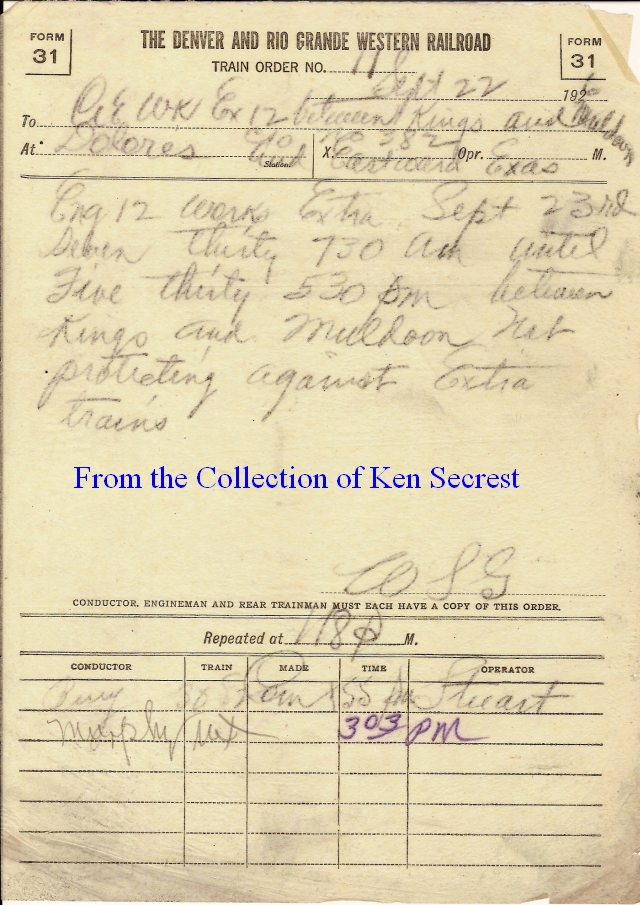 FORM 31
THE DENVER AND RIO GRANDE WESTERN RAILROAD
FORM 31
TRAIN ORDER NO.
Sept 22 192
To C&E WK Ex 12 between Kings and Muldoon
At Dolores Station. X. Eastward Opr. Exas M.
Eng 12 works Extra Sept 23rd
Seven thirty 730 am until
Five thirty 530 pm between
Kings and Muldoon Not
protecting against Extra
trains
From the Collection of Ken Secrest
WSG
CONDUCTOR, ENGINEMAN AND REAR TRAINMAN MUST EACH HAVE A COPY OF THIS ORDER.
Repeated at 118 p M.
CONDUCTOR TRAIN MADE TIME OPERATOR
Com Stuart
Murphy 303 PM